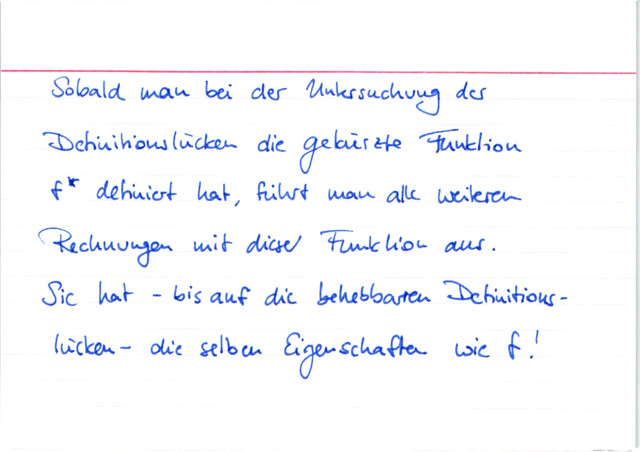 Sobald man bei der Untersuchung der
Definitionslücken die gekürzte Funktion
f* definiert hat, führt man alle weiteren
Rechnungen mit dieser Funktion aus.
Sie hat - bis auf die behebbaren Definitions-
lücken - die selben Eigenschaften wie f!